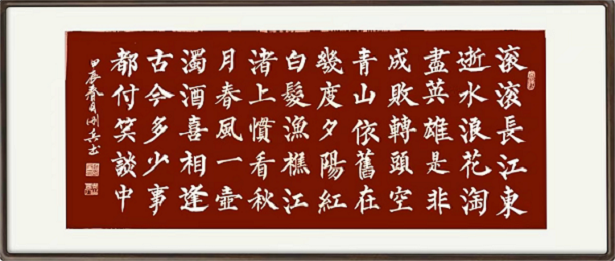 滾滾長江東
逝水浪花淘
盡英雄是非
成敗轉頭空
青山依舊在
幾度夕陽紅
白髮漁樵江
渚上慣看秋
月春風一壺
濁酒喜相逢
古今多少事
都付笑談中
甲辰春月